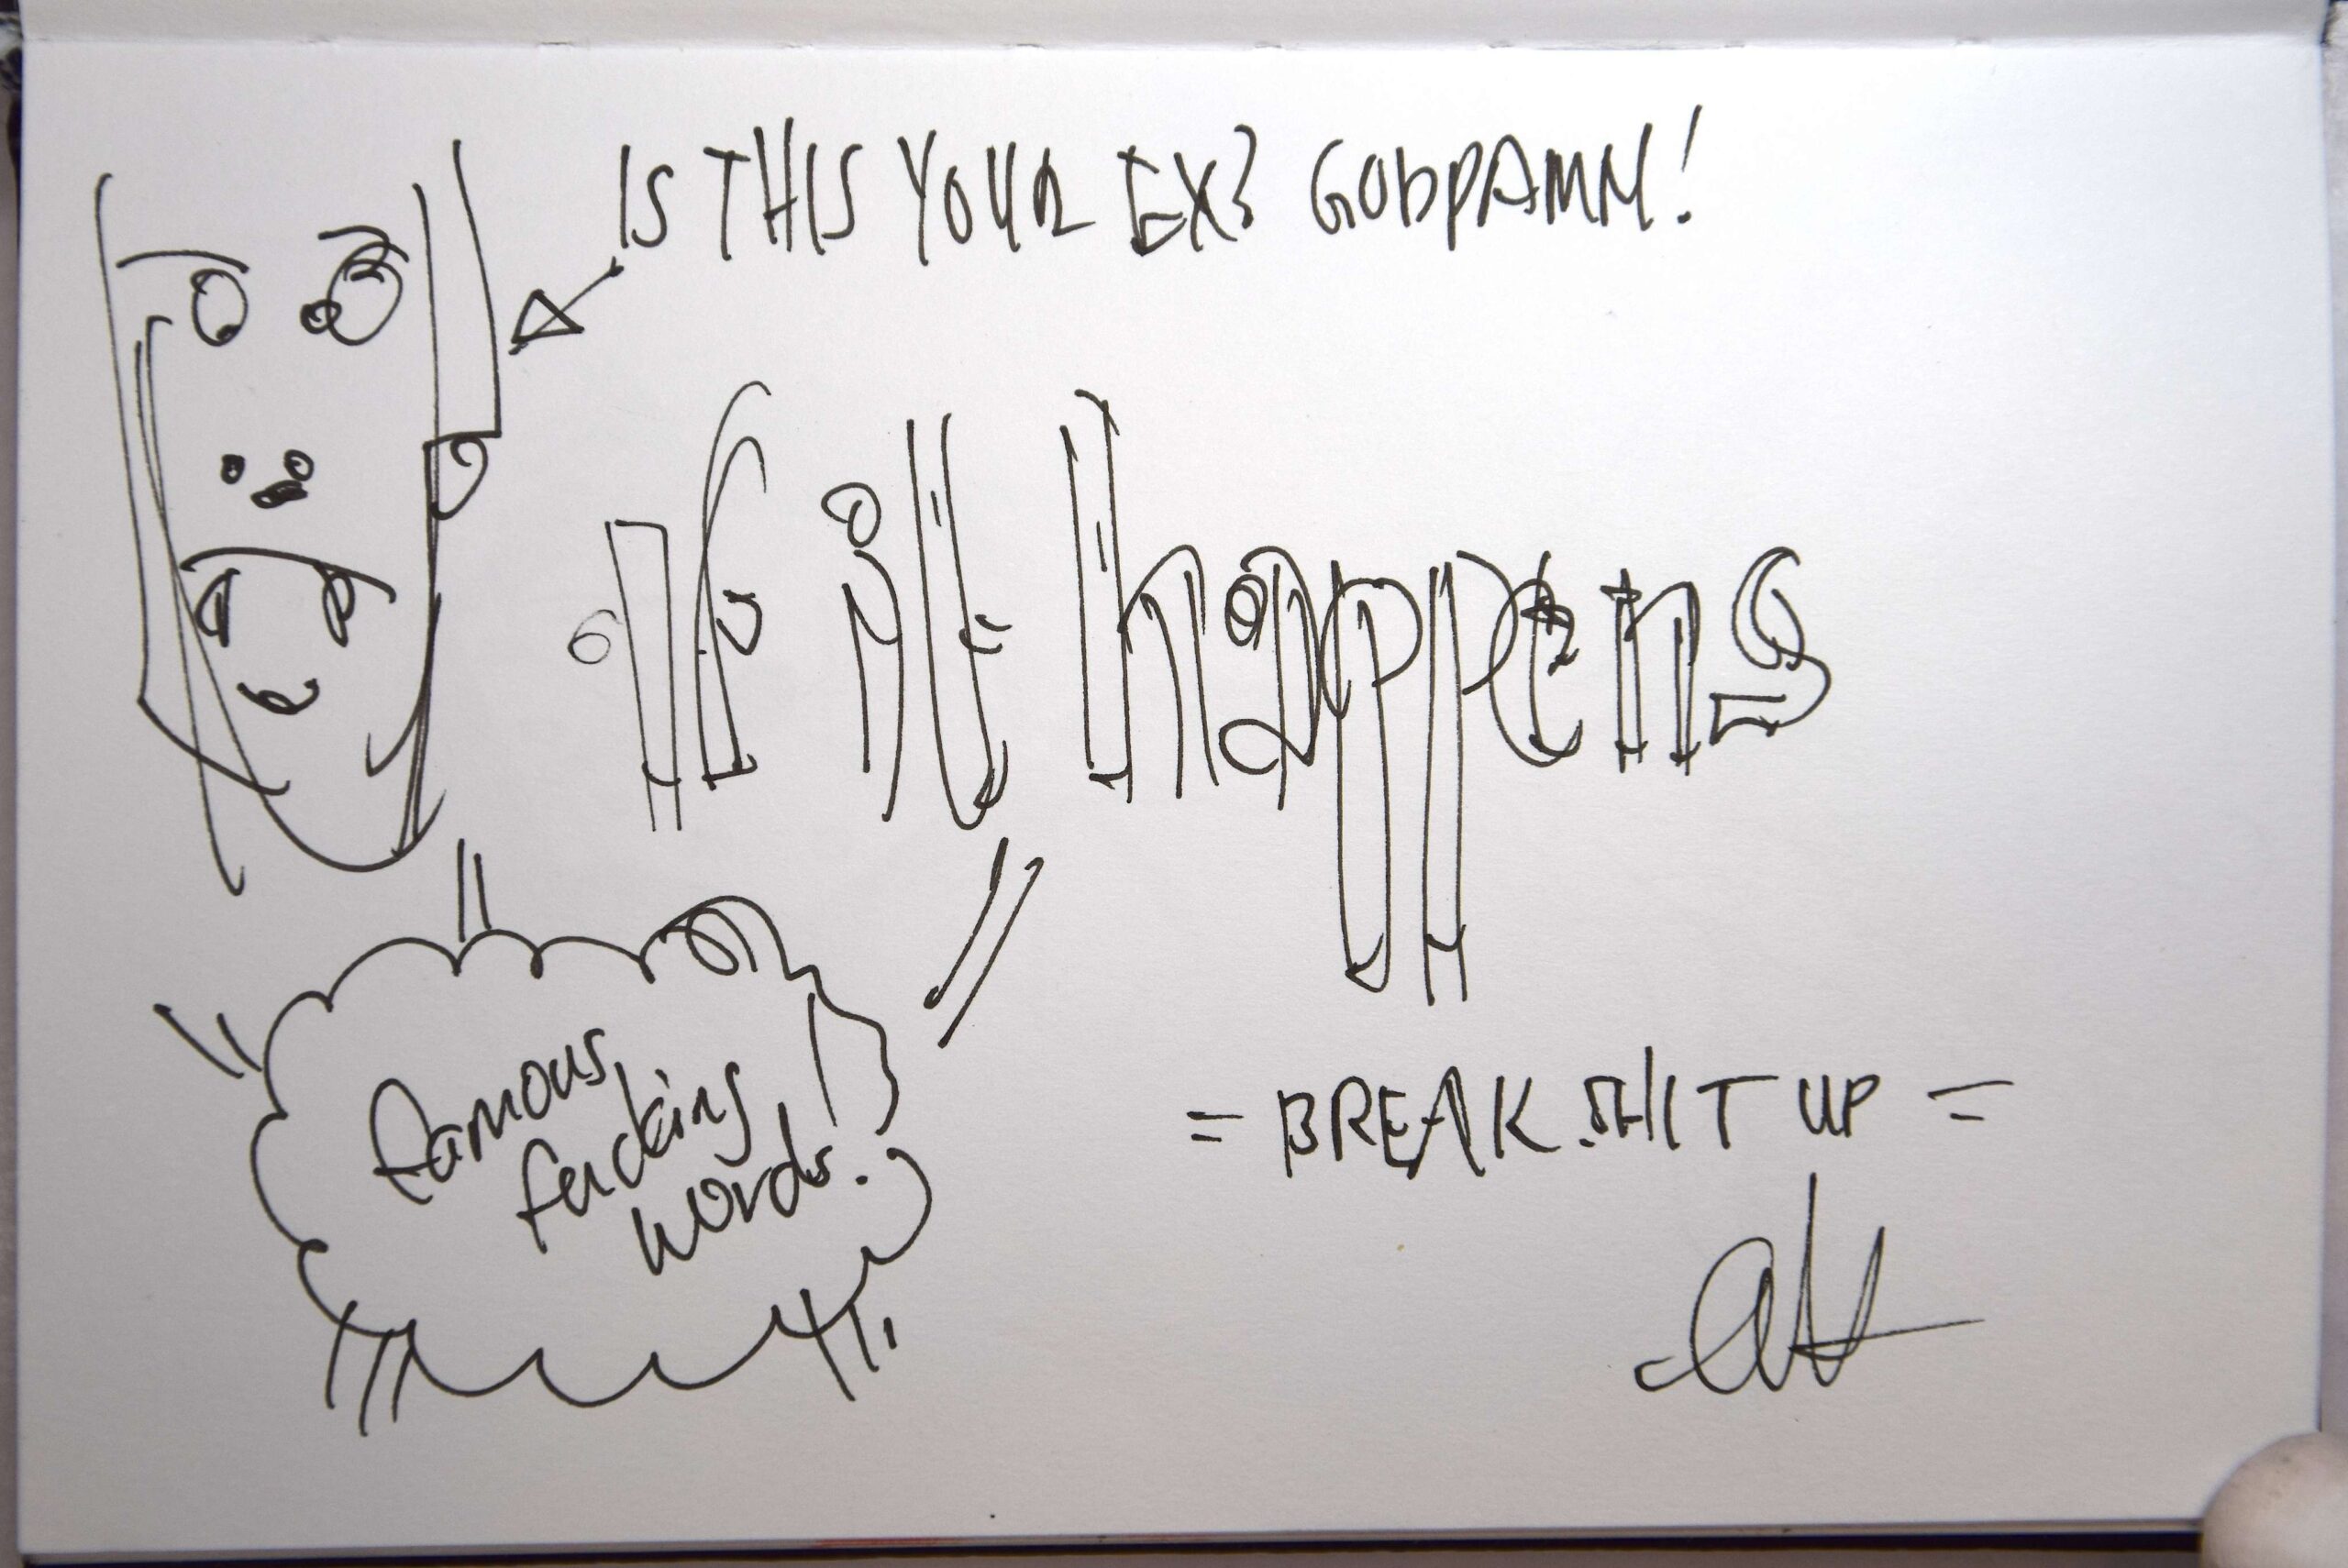 IS THIS YOUR EX? GODDAMN!
if it happens
famous
fucking
words.
= BREAK SHIT UP =